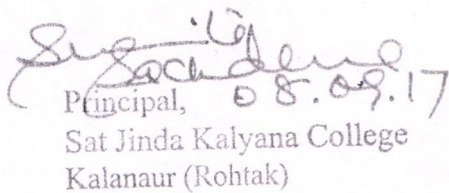 Sachdeva
08.09.17
Principal,
Sat Jinda Kalyana College
Kalanaur (Rohtak)